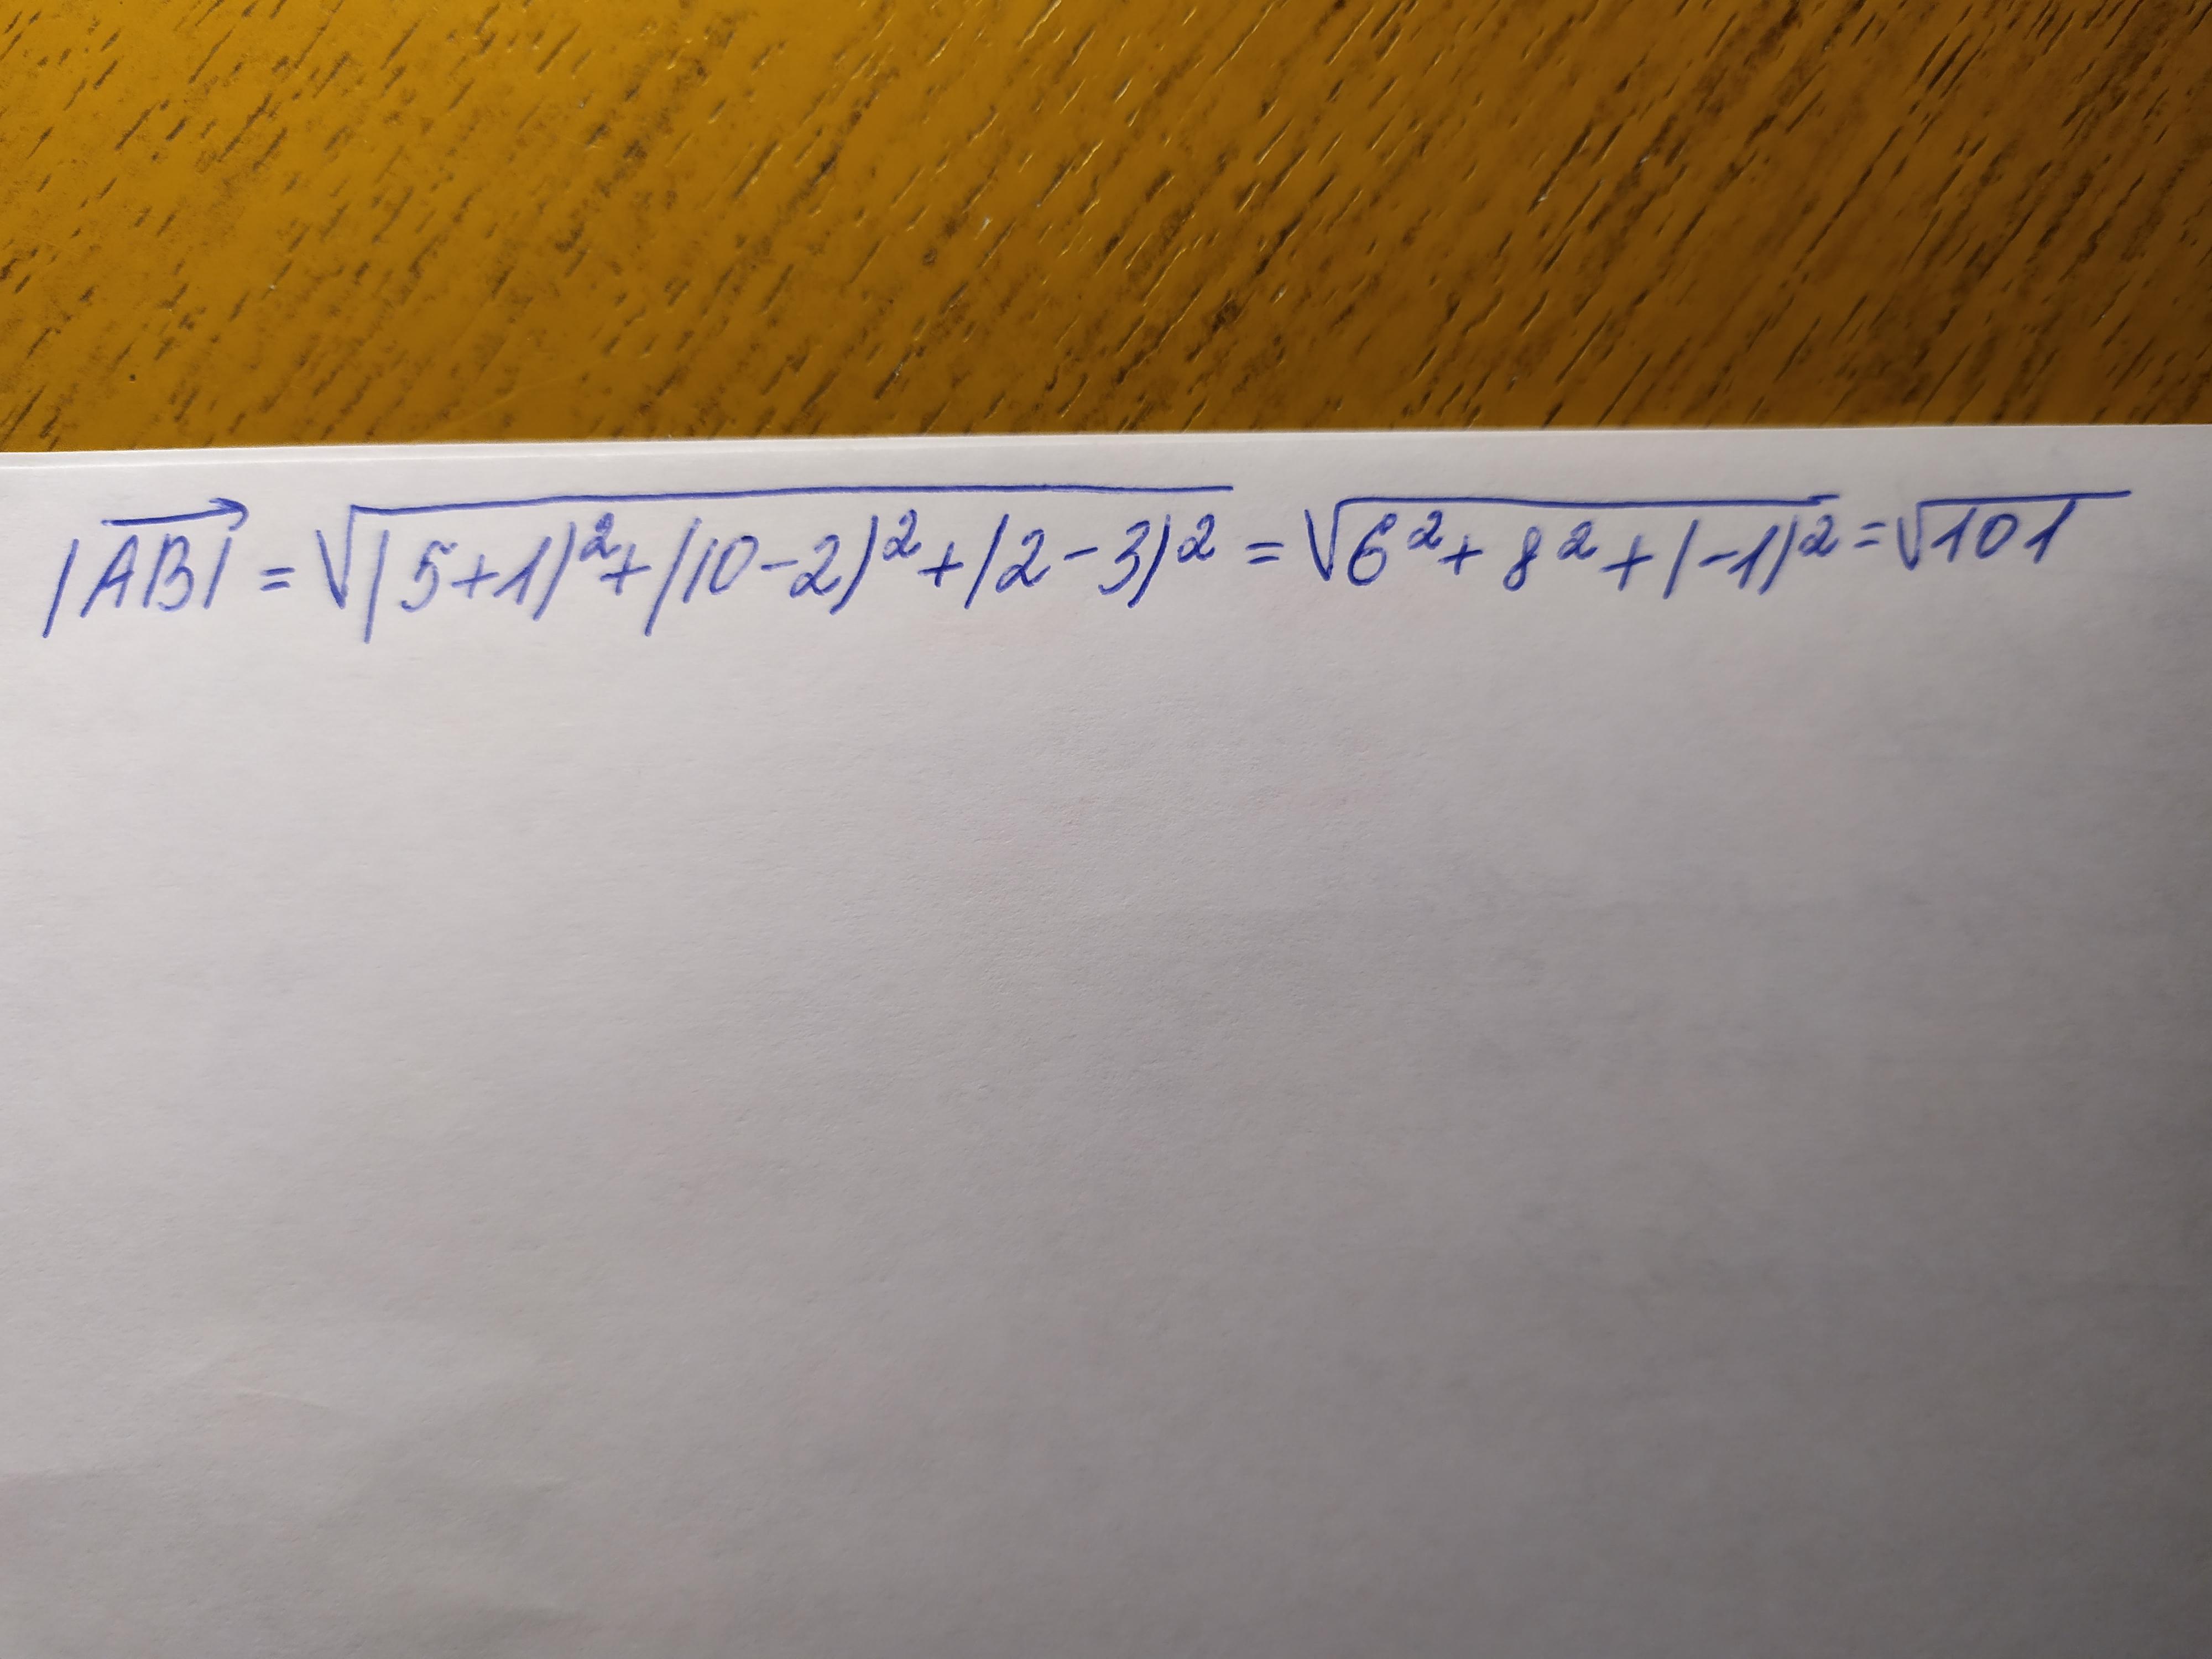 |AB⃗| = √((5+1)²+(10-2)²+(2-3)²) = √(6²+8²+(-1)²) = √101